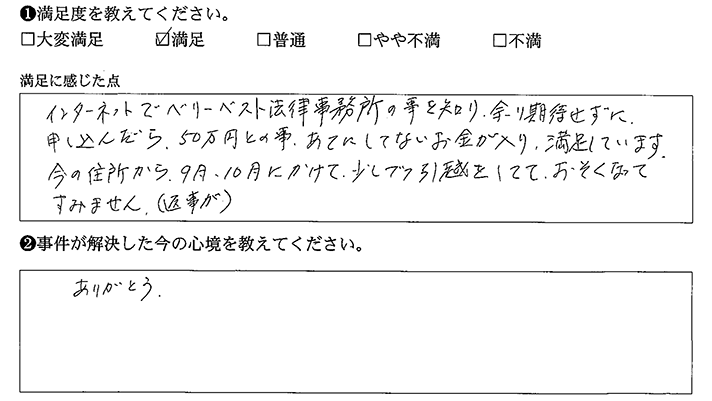 ❶満足度を教えてください。
□大変満足 ☑満足 □普通 □やや不満 □不満
満足に感じた点
インターネットでベリーベスト法律事務所の事を知り、余り期待せずに、
申し込んだら、50万円との事、あてにしてないお金が入り、満足しています。
今の住所から、9月、10月にかけて、少しづつ引越をしてて、おそくなって
すみません。(返事が)
❷事件が解決した今の心境を教えてください。
ありがとう。